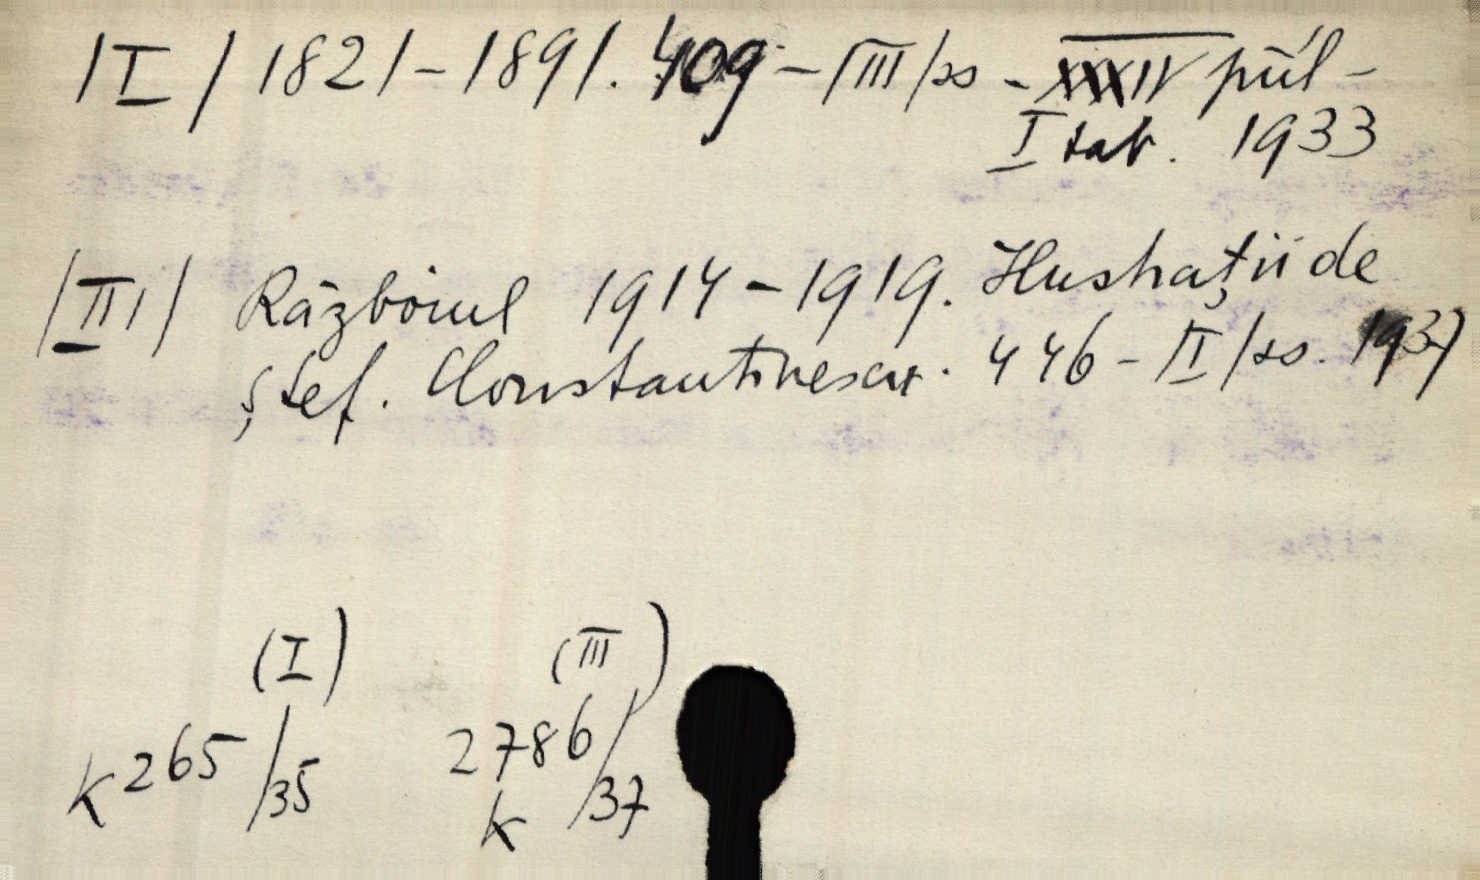 /I/ 1821-1891. 409-/III/ss - XXXIV púl-
I tab. 1933
/III/ Războiul 1914-1919. Ilustrații de
Ștef. Constantinescu. 446-/II/ss. 1937
(I) (III)
K 265/35 2786/37
K